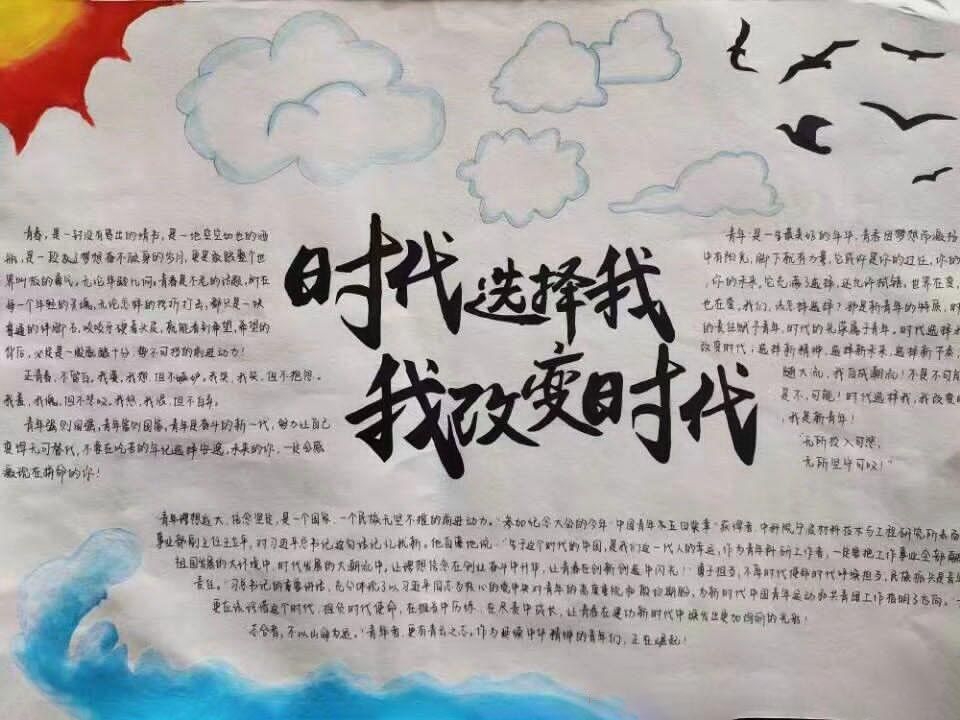 时代选择我
我改变时代
青春,是一封没有寄出的情书,是一地空空如也的酒
瓶,是一段敢让梦想奋不顾身的岁月,更是敢跟整个世
界叫板的勇气,无论年龄几何,青春是不老的诗歌,刻在
每一个年轻的灵魂,无论怎样的挫折打击,都只是一块
普通的绊脚石,咬咬牙硬着头皮,就能看到希望,希望的
背后,必定是一股酝酿十分,势不可挡的前进动力!
正青春,不留白。我累,我想,但不嫉妒。我哭,我笑,但不抱怨。
我羞,我愧,但不禁叹。我怒,我恨,但不自卑。
青年强则国强,青年富则国富,青年是奋斗的新一代,努力让自己
变得无可替代,不要在吃苦的年纪选择安逸,未来的你,一定会感
激现在拼命的你!
青年是一生最美好的年华,青春因梦想而激扬
中有阳光,脚下就有力量,它既你是你的过往,你的
,你的未来,它充满了选择,还允许试错,世界在变,
也在变,我们,该怎样选择?那是新青年的特质,时
的责任赋予青年,时代的光荣属于青年。时代选择
改变时代;选择新精神,选择新未来,选择新节奏,
随大流,我自成潮流!不是不可能
是不,可能!时代选择我,我改变时
,我是新青年!
“无所投入可悲,
无所坚守可叹!”
“青年理想远大、信念坚定,是一个国家、一个民族无坚不摧的前进动力。”参加纪念大会的今年“中国青年五四奖章”获得者、中科院宁波材料技术与工程研究所表面
事业部副主任王立平,对习近平总书记这句话记忆犹新。他自豪地说:“生于这个时代的中国,是我们这一代人的幸运,作为青年科研工作者,一定要把工作事业全部融
祖国发展的大环境中,时代发展的大潮流中,让理想信念在创业奋斗中升华,让青春在创新创造中闪光!”勇于担当,不辱时代使命时代呼唤担当,民族振兴是青
责任。“习总书记的重要讲话,充分体现了以习近平同志为核心的党中央对青年的高度重视和殷切期盼,为新时代中国青年运动和共青团工作指明了方向。
更应该珍惜这个时代,担负时代使命,在担当中历练,在尽责中成长,让青春在建功新时代中焕发出更加绚丽的光彩!
志合者,不以山海为远。”青年者,更有青云之志。作为延续中华精神的青年们,正在崛起!